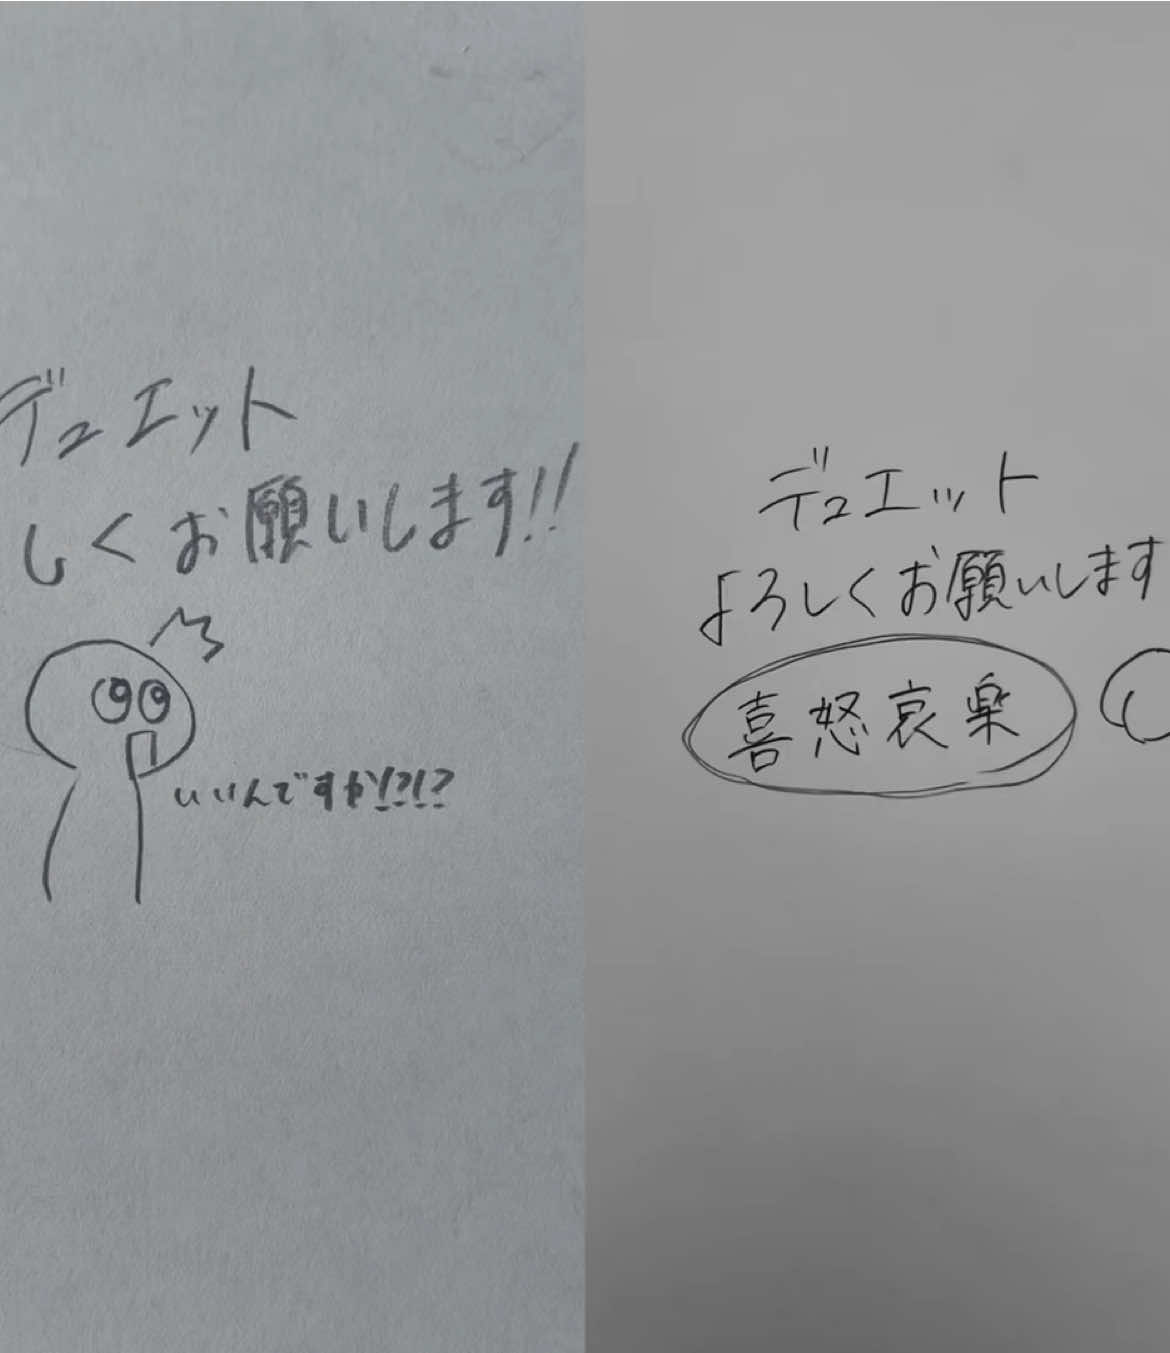 デュエット
しくお願いします!!
いいんですか!?!?
デュエット
よろしくお願いします
喜怒哀楽